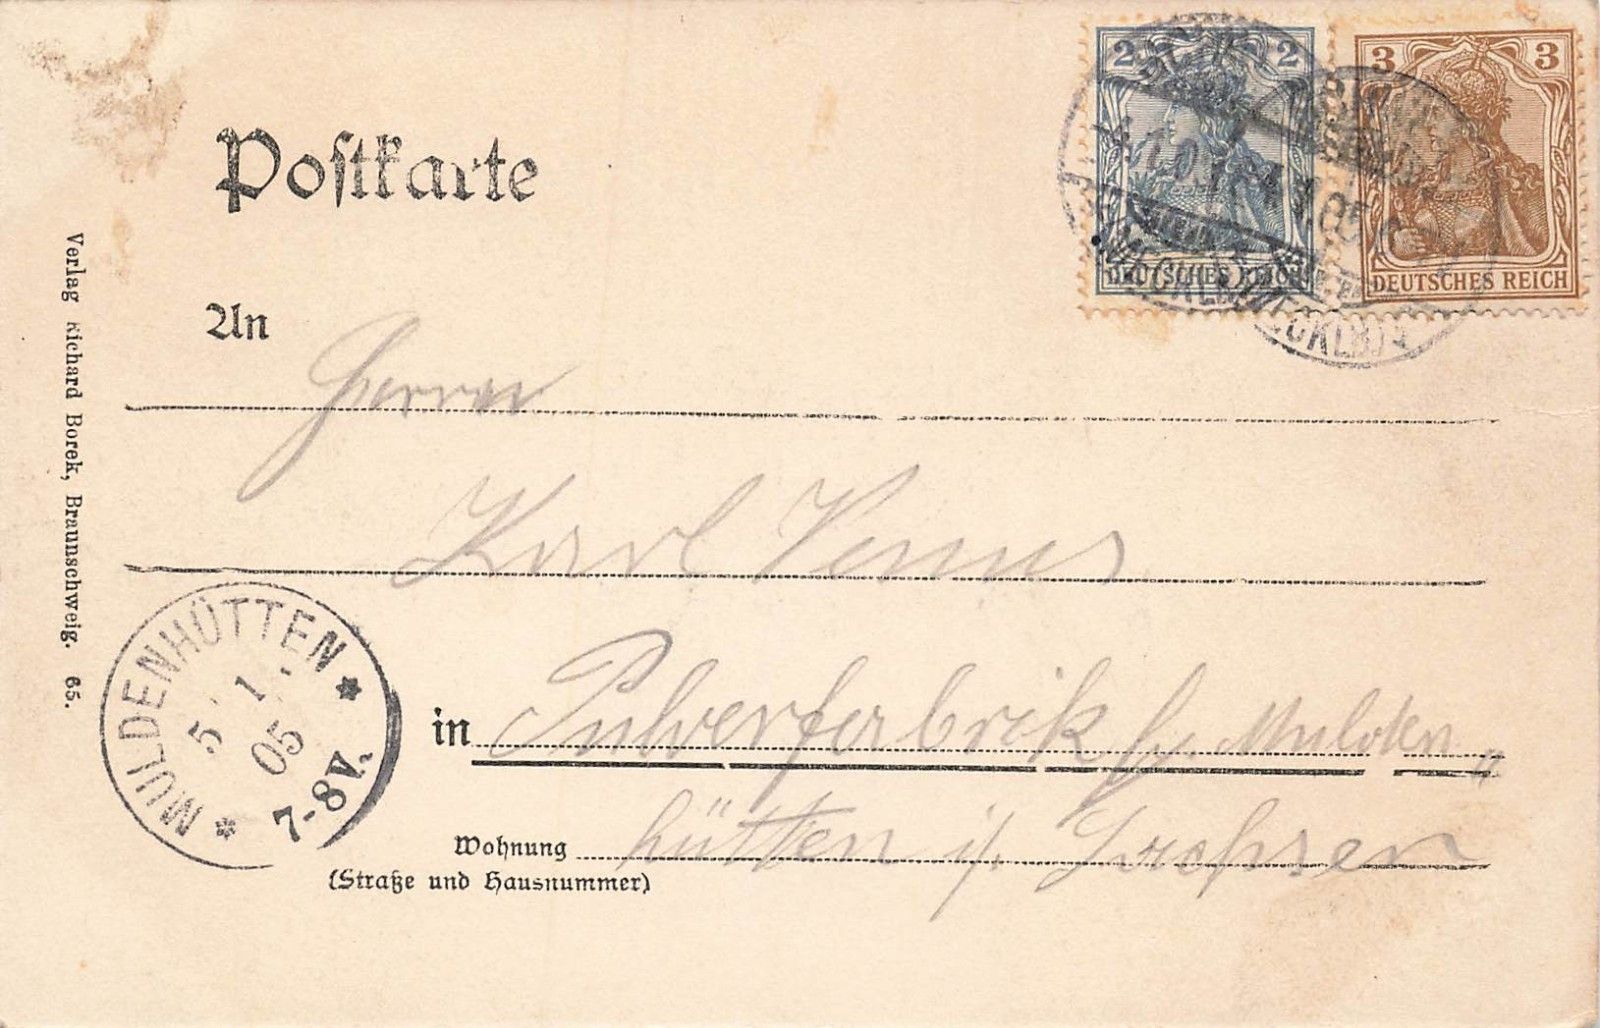 Postkarte
2 2
DEUTSCHES REICH
3 3
DEUTSCHES REICH
(MECKLB)
An
Herrn
Karl Venus
in Pulverfabrik b/. Mulden
hütten i/. Sachsen
Wohnung
(Straße und Hausnummer)
MULDENHÜTTEN
5 1.
05
7-8V.
Verlag Richard Borek, Braunschweig. 65.